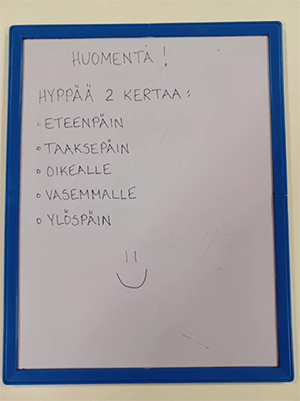 HUOMENTA !
HYPPÄÄ 2 KERTAA:
• ETEENPÄIN
• TAAKSEPÄIN
• OIKEALLE
• VASEMMALLE
• YLÖSPÄIN